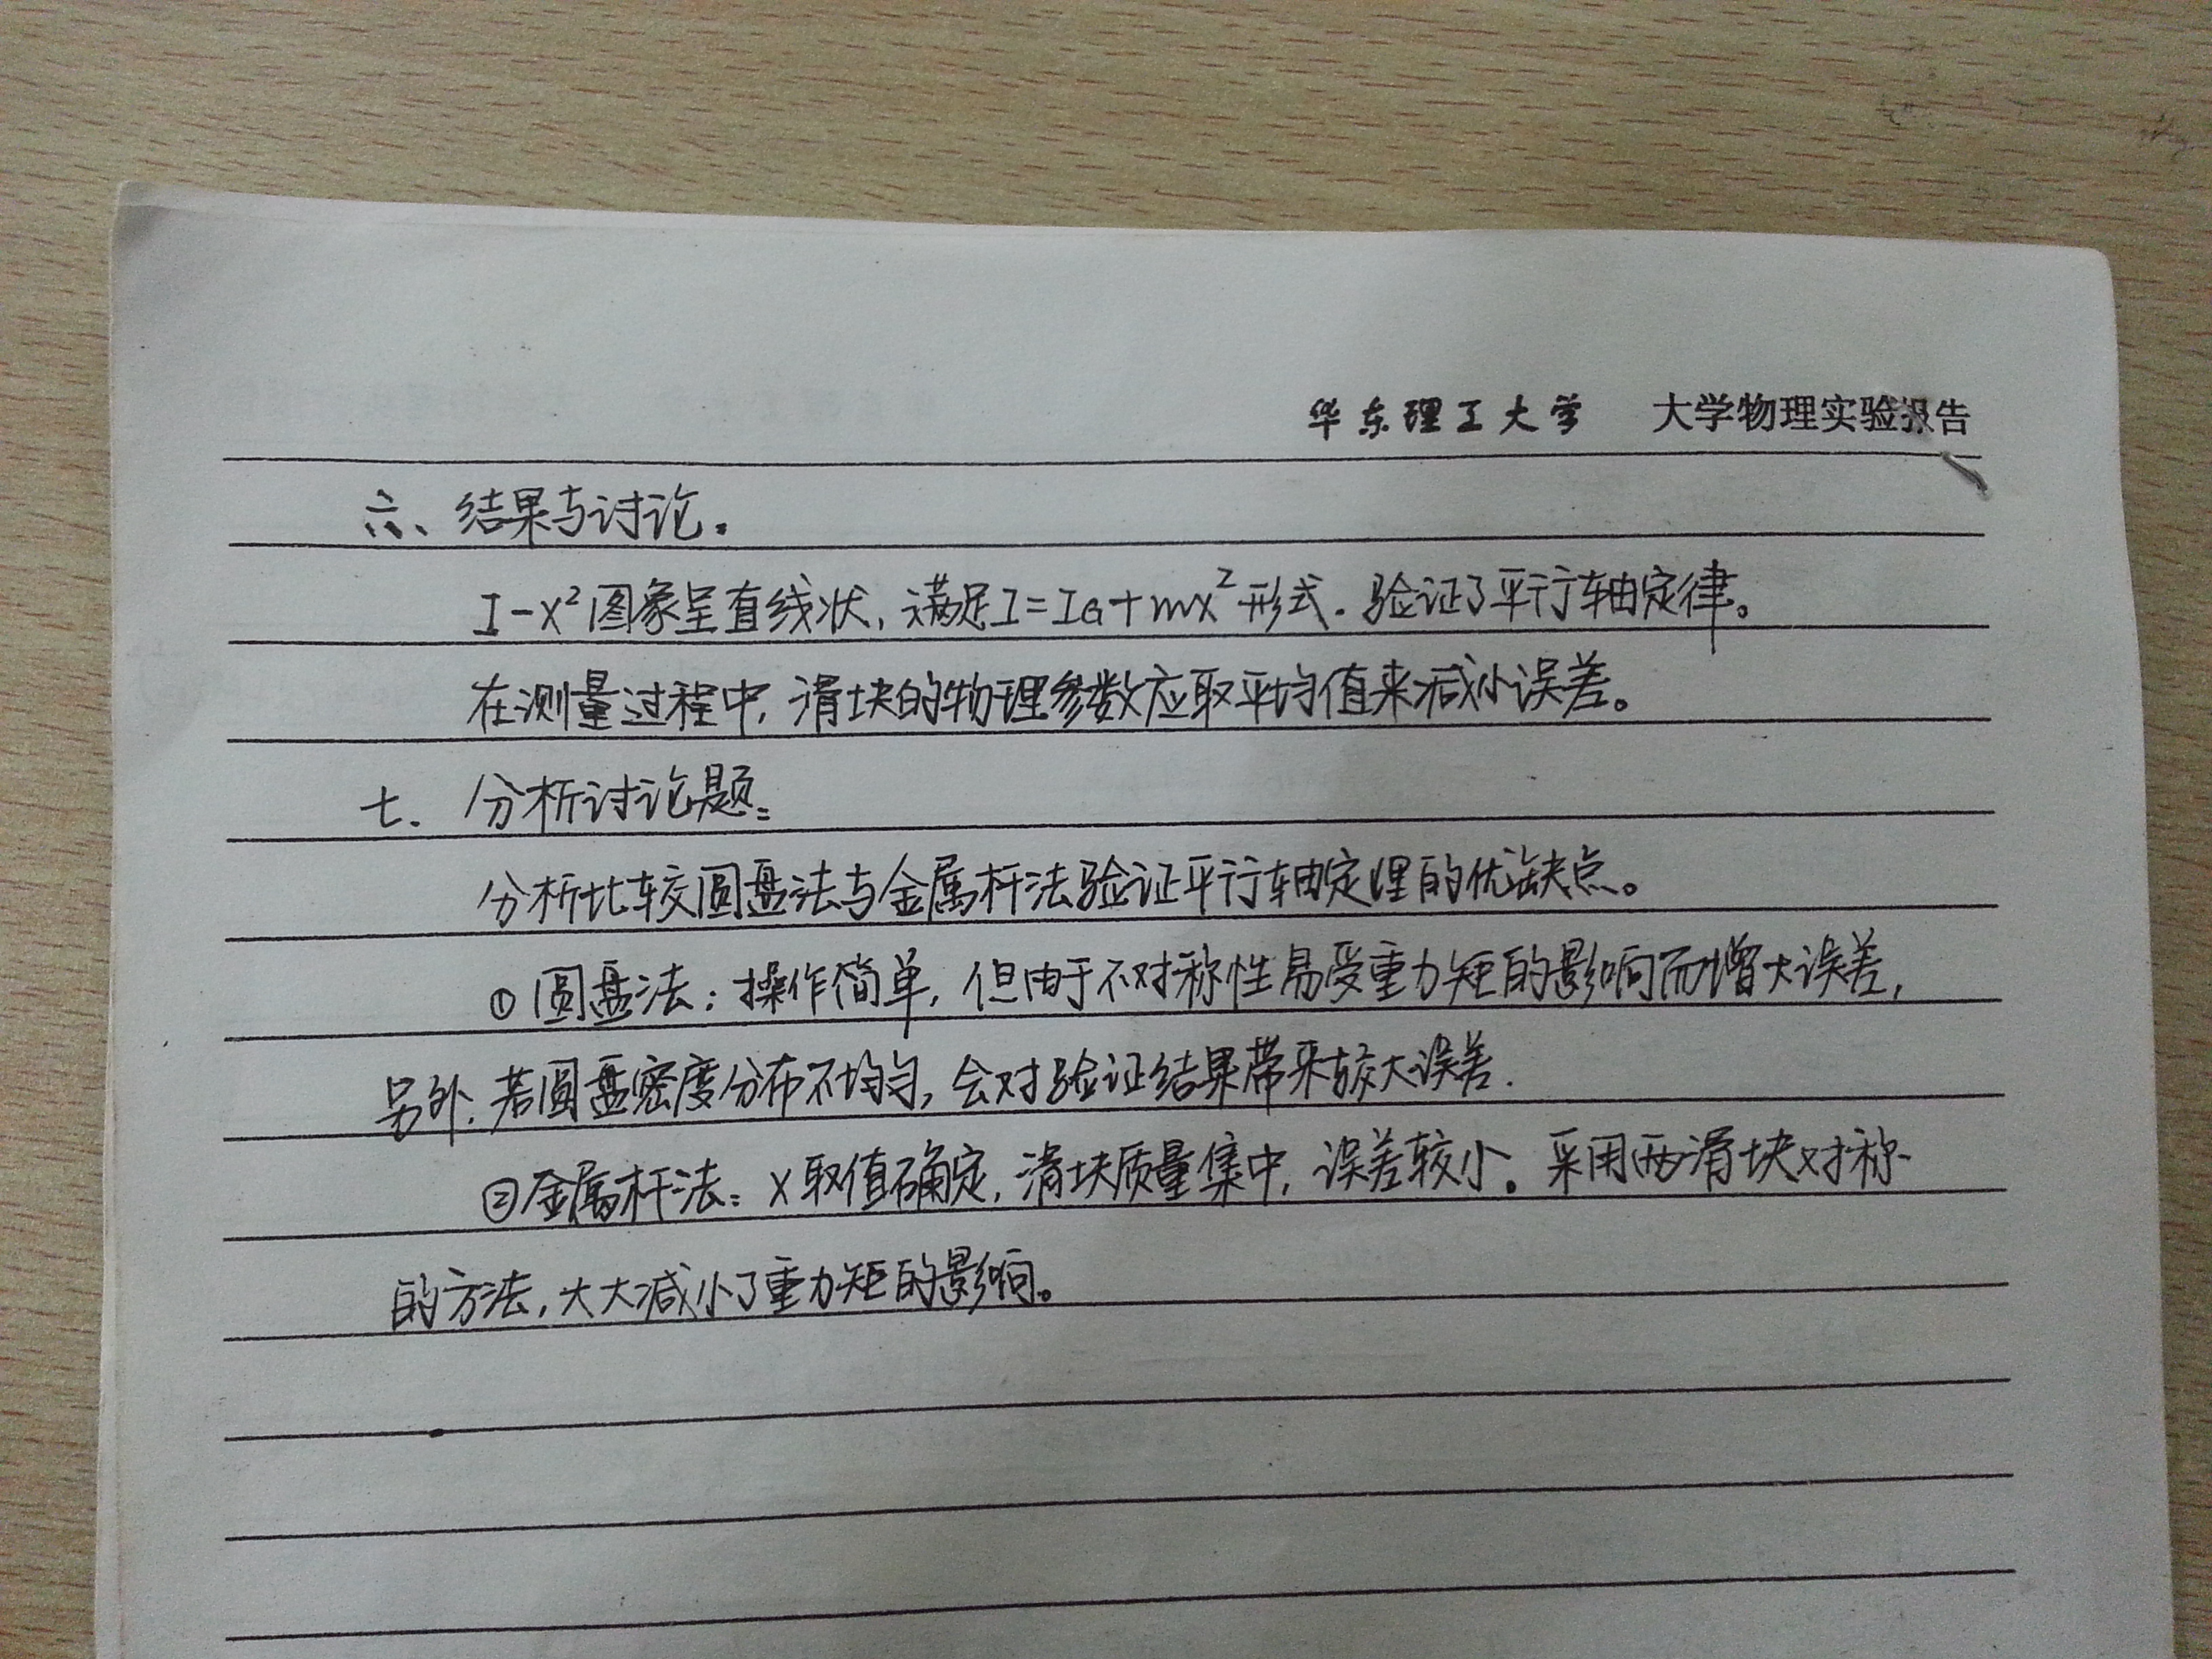 华东理工大学 大学物理实验报告
六、结果与讨论。
I-X²图象呈直线状,满足I=IG+mx²形式.验证了平行轴定律。
在测量过程中,滑块的物理参数应取平均值来减小误差。
七、分析讨论题:
分析比较圆盘法与金属杆法验证平行轴定理的优缺点。
①圆盘法:操作简单,但由于不对称性易受重力矩的影响而增大误差,
另外,若圆盘密度分布不均匀,会对验证结果带来较大误差.
②金属杆法:X取值确定,滑块质量集中,误差较小。采用两滑块对称
的方法,大大减小了重力矩的影响。